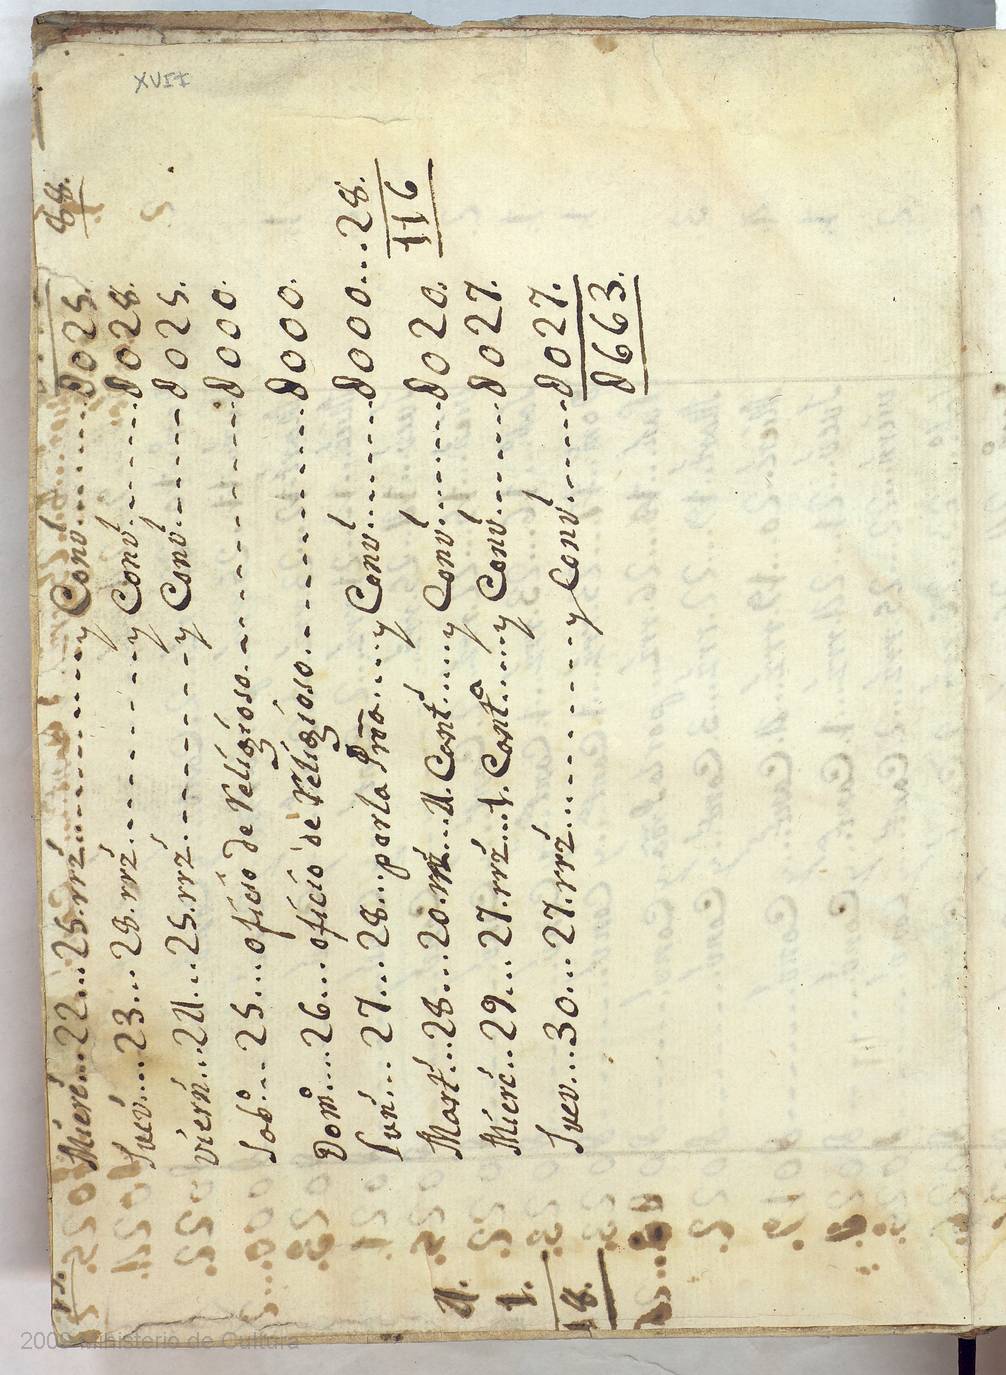 XVII
88.
Mierć....22....25.rrź.............y Conv́.......8025.
Juev́....23...28.rrź.............y Conv́.......8028.
Viern̄....24....25.rrź.............y Conv́.......8025.
Sab.º....25....oficio de religioso..............8000.
Dom.º....26....oficio de religioso..............8000.
Lun̄....27....28....por la......y Conv́.......8000....28.
Mart́....28....20.rrź....4. Cant́......y Conv́.......8020. 116
4. Mierć....29....27.rrź....1. Cant.ª......y Conv́.......8027.
1. Juev....30....27.rrź.............y Conv́.......8027.
18. 8663.
Ministerio de Cultura